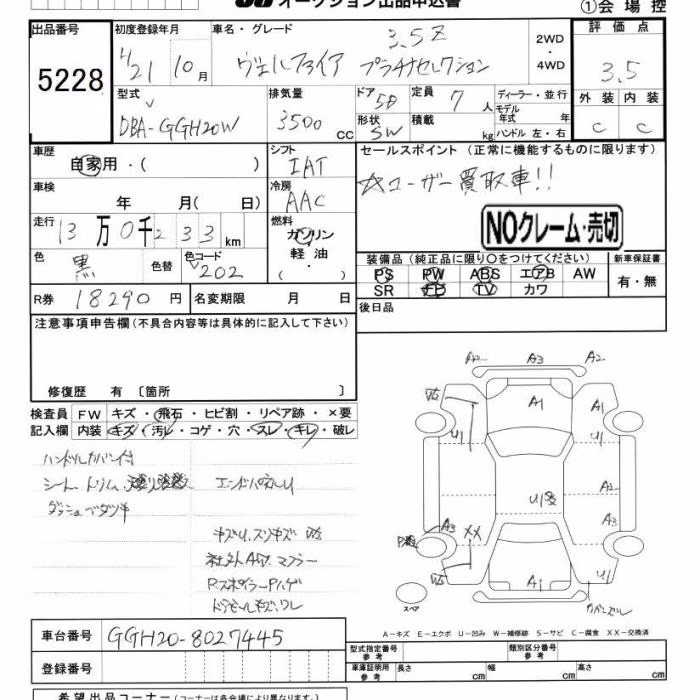 オークション出品申込書
①会場控
出品番号
5228
初度登録年月
H21年10月
車名・グレード
ヴェルファイア 3.5Z プラチナセレクション
2WD
・
4WD
評価点
3.5
外装 内装
C C
型式
DBA-GGH20W
排気量
3500 CC
ドア
5D
形状
SW
定員 7 人
積載 kg
ディーラー・並行
モデル年式 年
ハンドル 左・右
車歴
自家用・( )
シフト
IAT
セールスポイント (正常に機能するものに限ります)
☆ユーザー買取車!!
車検
年 月( 日)
冷房
AAC
走行
13万0千233km
燃料
ガソリン
軽油・
( ・ )
NOクレーム・売切
色
黒
色替
色コード
202
装備品(純正品に限り○をつけてください)
PS PW ABS エアB AW
SR ナビ TV カワ
新車保証書
有・無
R券 18290円
名変期限 月 日
後日品
注意事項申告欄(不具合内容等は具体的に記入して下さい)
修復歴 有〔箇所 〕
検査員記入欄
FW キズ・飛石・ヒビ割・リペア跡・×要
内装 キズ・汚レ・コゲ・穴・スレ・キレ・破レ
ハンドルカバー付
シート、トリム
エンドバネルU
キズU、スリキズ
社外AW、マフラー
RスポイラーPハゲ
A2 A3 A2
A1
U1 U1
A2
A3 XX A3
A1 U1
スペア
A-キズ E-エクボ U-凹み W-補修跡 S-サビ C-腐食 XX-交換済
車台番号
GGH20-8027445
登録番号
型式指定番号
参考
類別区分番号
参考
車庫証明用
参考
長さ cm 幅 cm 高さ cm
希望出品コーナー(コーナーは各会場により異なります。)